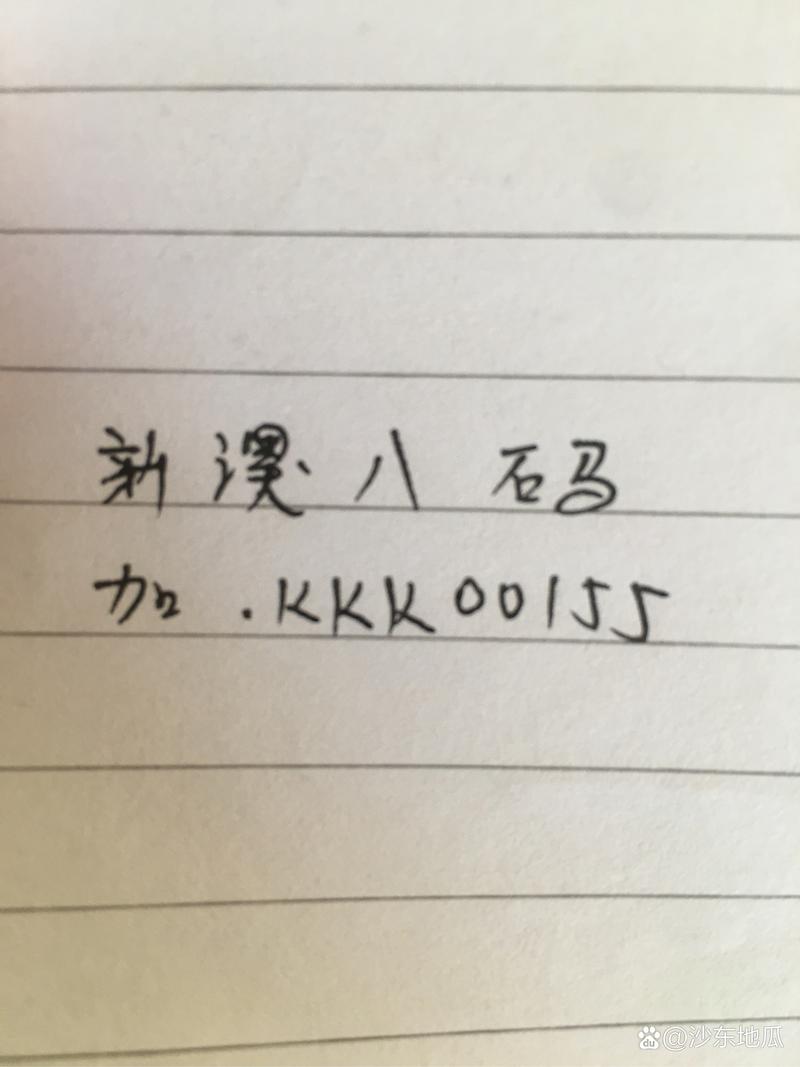 新澳八码
加.KKK00155
du@沙东地瓜